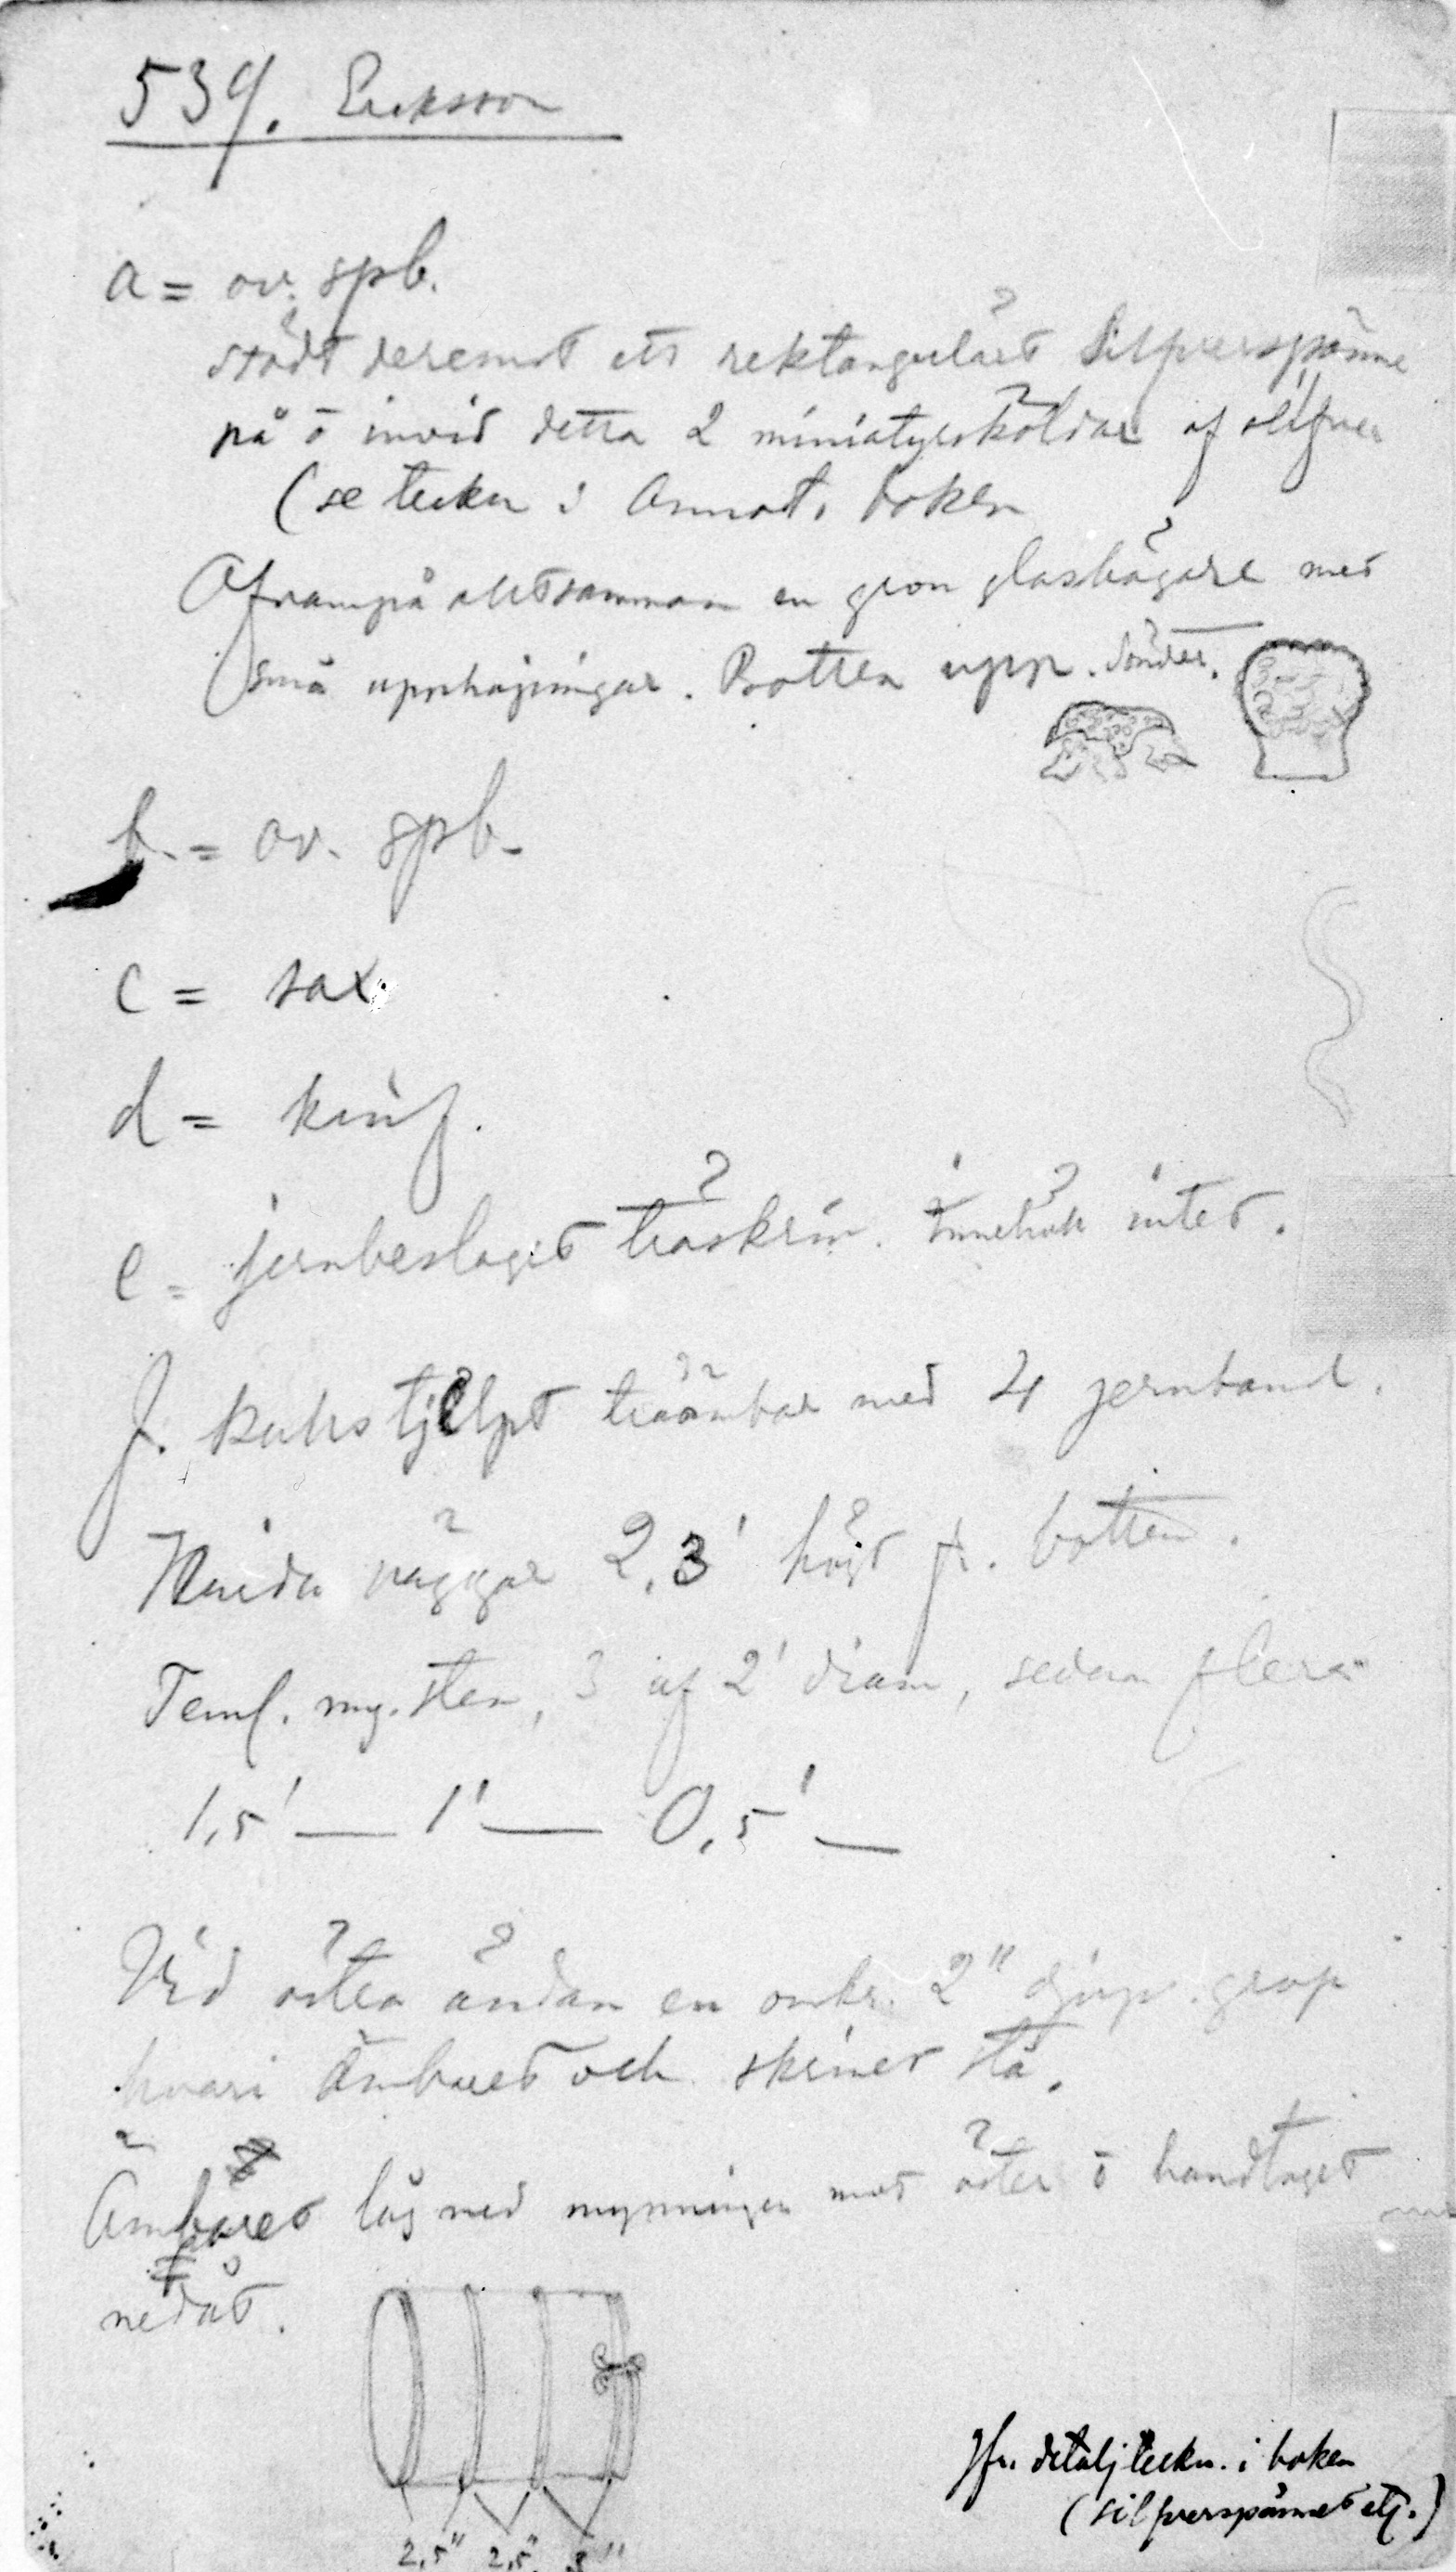 539. Eriksson
a = ov. spb.
stödt deremot ett rektangulärt silfverspänne
på o invid detta 2 miniatyrsköldar af silfver
(se teckn i Annot. boken
Ofvanpå alltsamman en grön glasbägare med
små upphöjningar. Botten upp. Sönder.
b. = ov. spb.
c = sax.
d = knif.
e = jernbeslaget träskrin. Innehöll intet.
f. kullstjelpt träämbar med 4 jernband.
väggar 2,3' högt fr. botten.
Teml. my. sten, 3 af 2' diam, sedan flera
1,5' — 1' — 0,5' —
Vid östra ändan en omkr. 2" djup grop
hvari ämbaret och skrinet stå.
Ämbaret låg med mynningen mot öster o handtaget
nedåt.
2,5" 2,5" 3"
Jfr. detaljteckn. i boken
(silfverspännet etc.)